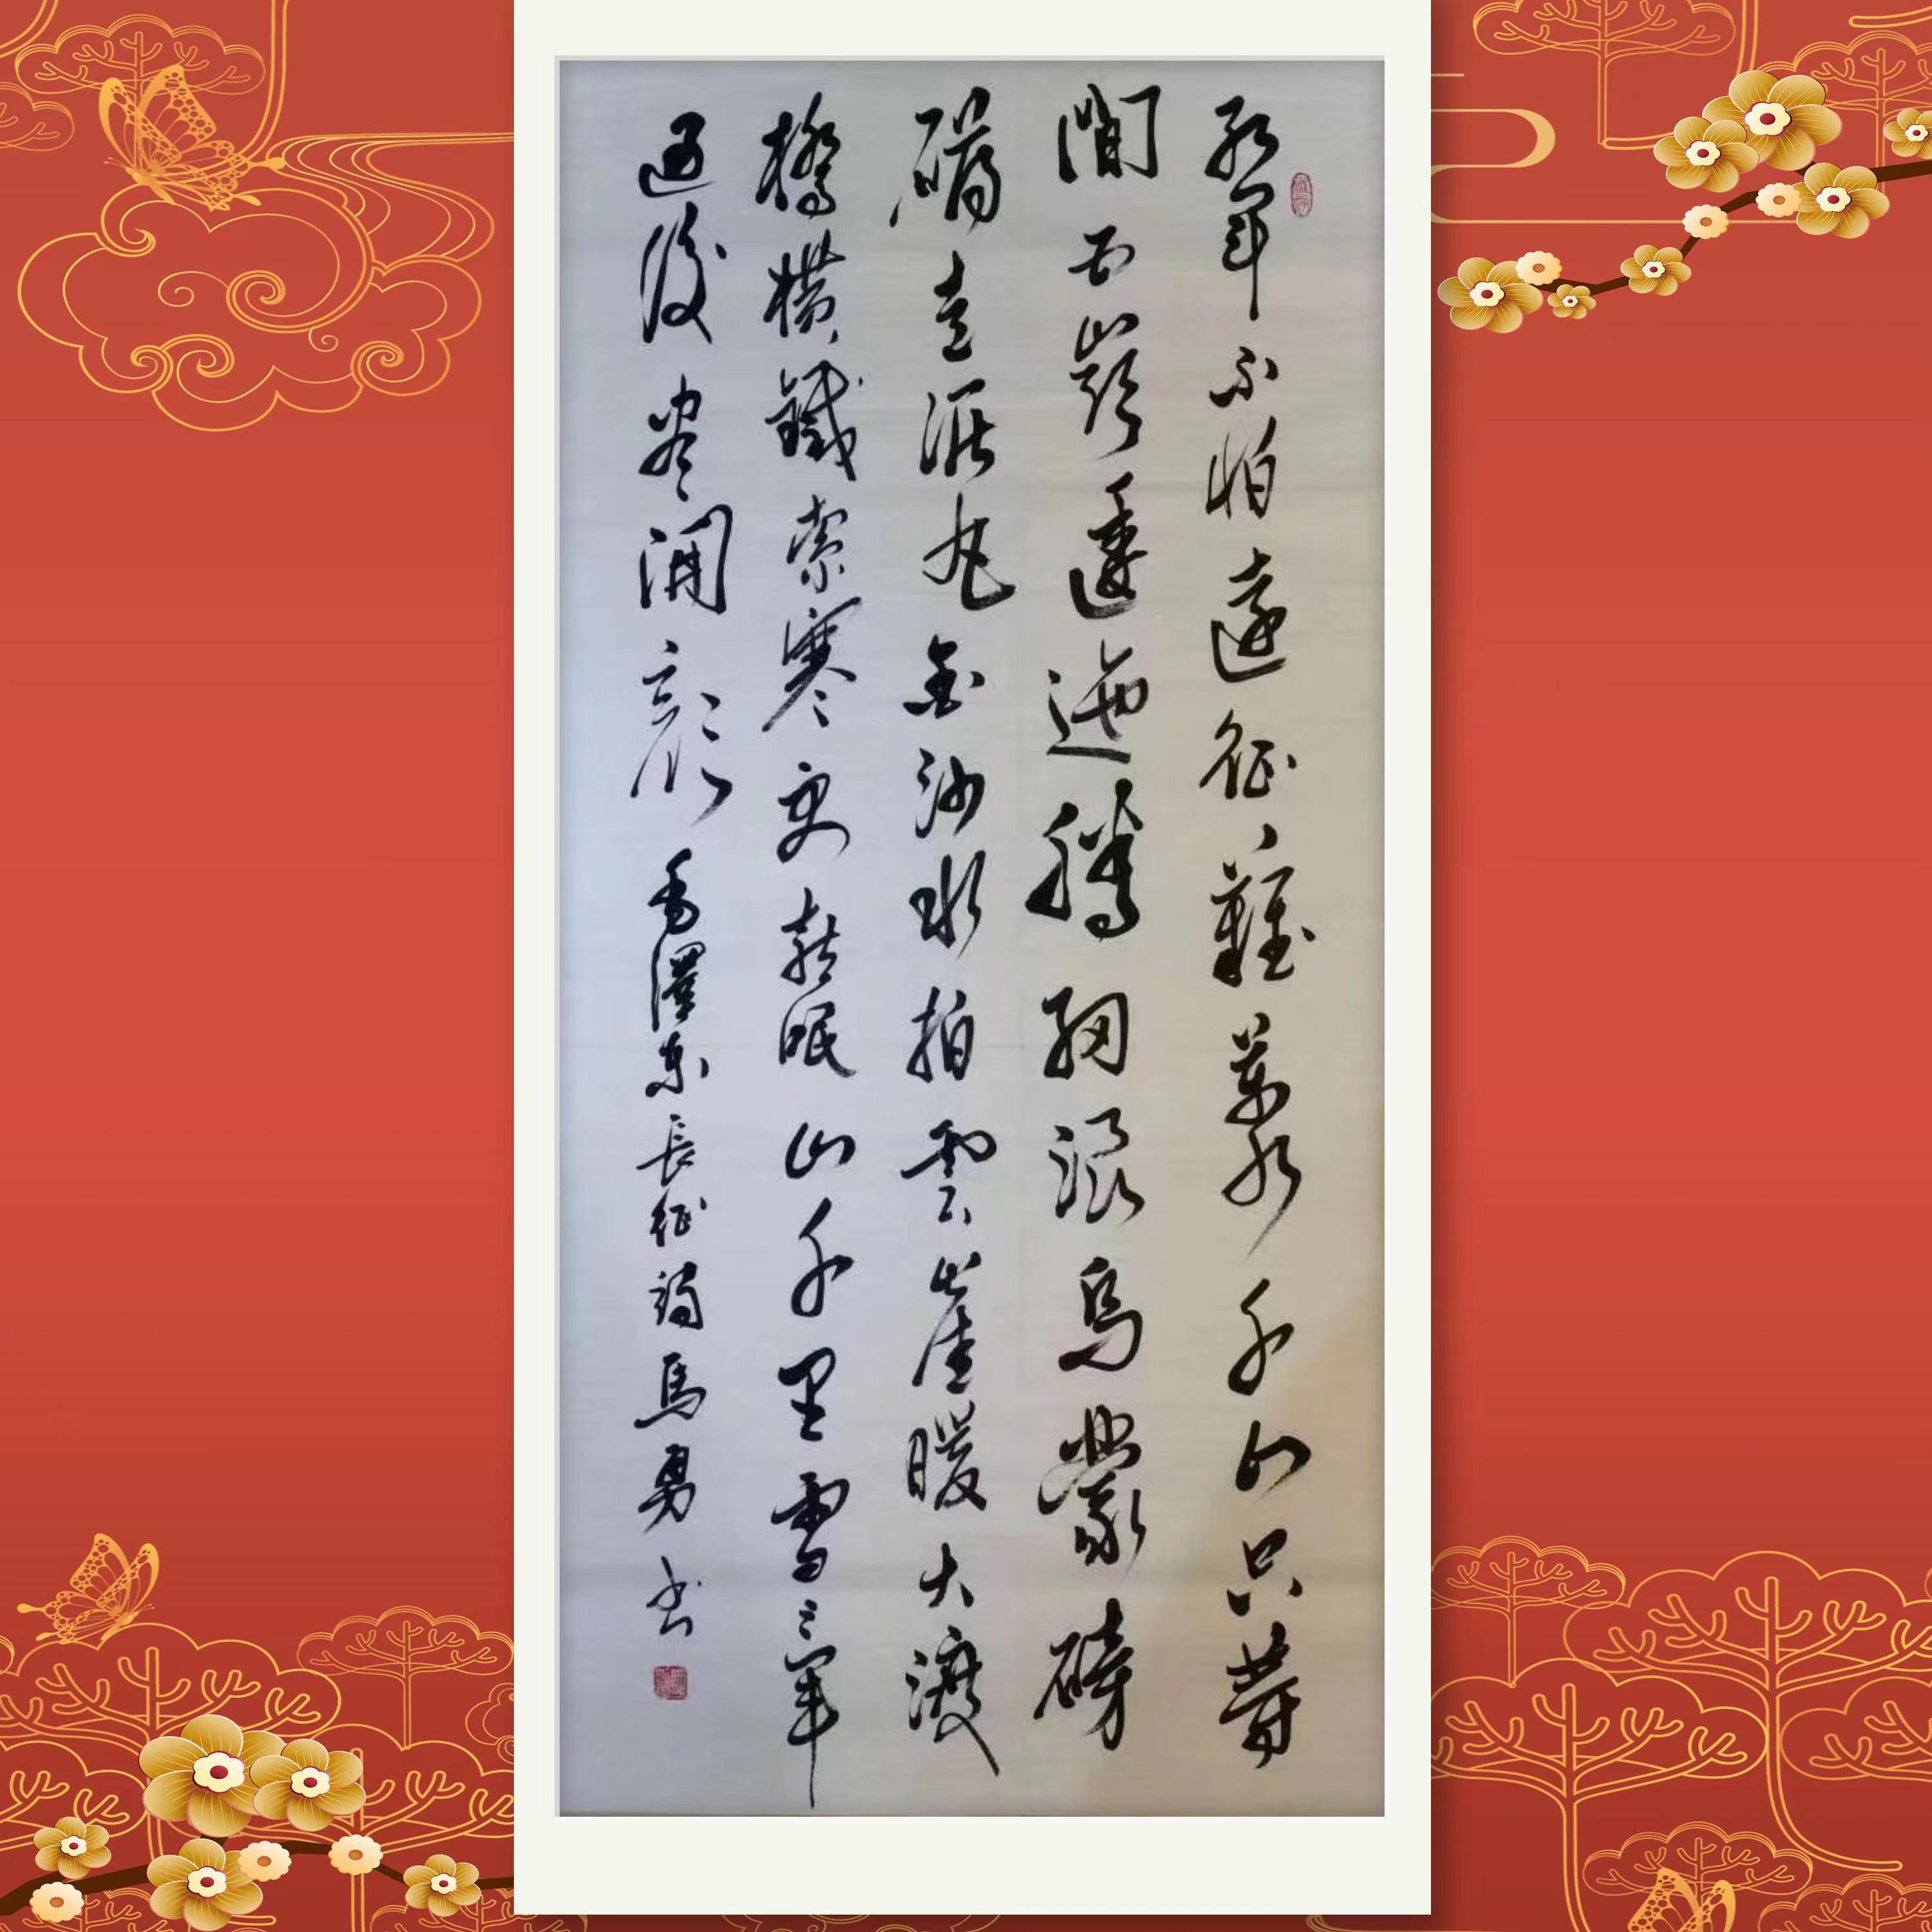 紅軍不怕遠征難萬水千山只等
閒五嶺逶迤騰細浪烏蒙磅
礴走泥丸金沙水拍雲崖暖大渡
橋橫鐵索寒更喜眠山千里雪三軍
過後盡開顏 毛澤東長征詩馬勇书